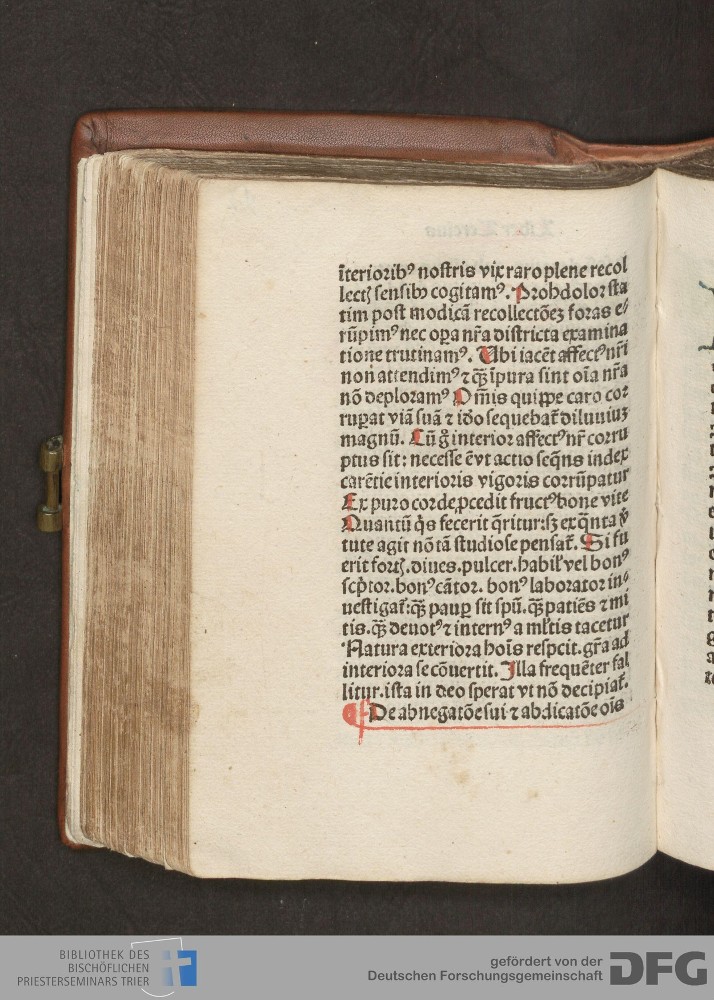 īteriorib⁹ nostris vix raro plene recol
lectꝭ sensibꝰ cogitam⁹. Prohdolor sta
tim post modicā recollectōeꝫ foras e⸗
rūpim⁹ nec oꝑa nr̄a districta examina
tione trutinam⁹. Ubi iacēt affect⁹ nr̄i
non attendim⁹ ⁊ qꝫ̄ īpura sint oīa nr̄a
nō deploram⁹ Om̄is quippe caro cor
ruꝑat viā suā ⁊ iđo sequebat̄ diluuiuꝫ
magnū. Cū g̊ interior affect⁹ nr̄ corru
ptus sit: necesse ē vt actio seq̄ns index
carētie interioris vigoris corrūpatur
Ex puro corde ꝓcedit fruct⁹ bone vite
Quantū q̇s fecerit q̄ritur: sꝫ ex q̄nta v̇
tute agit nō tā studiose pensat̄. Si fu
erit fortꝭ. diues. pulcer. habil̄ vel bon⁹
scp̄tor. bon⁹ cātor. bon⁹ laborator in⸗
uestigat̄: qꝫ̄ pauꝑ sit spū. qꝫ̄ patiēs ⁊ mi
tis. qꝫ̄ deuot⁹ ⁊ intern⁹ a ml̄tis tacetur
Natura exteriora hoīs respicit. gr̄a ad
interiora se cōuertit. Illa frequēter fal
litur. ista in deo sperat vt nō decipiat̄.
¶ De abnegatōe sui ⁊ abdicatōe oīs
BIBLIOTHEK DES
BISCHÖFLICHEN
PRIESTERSEMINARS TRIER
gefördert von der
Deutschen Forschungsgemeinschaft
DFG